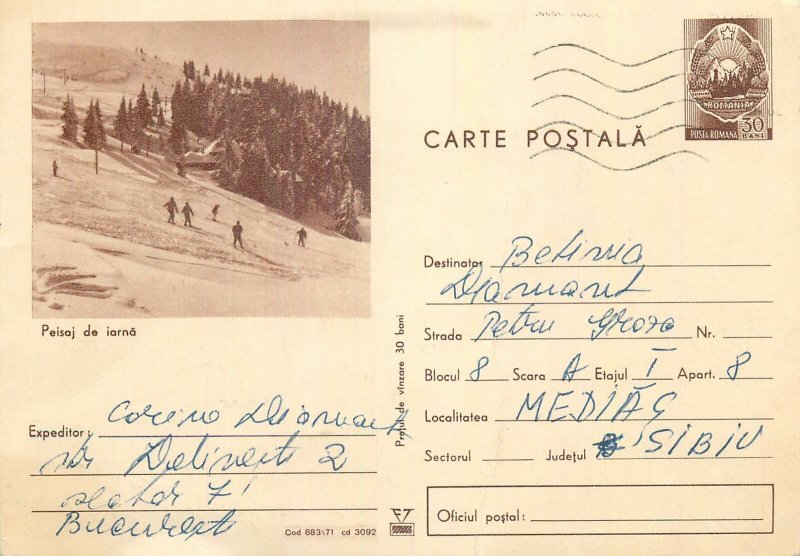 ROMANIA
POSTA ROMANA 30 BANI
CARTE POȘTALĂ
Peisaj de iarnă
Destinatar Betinia
Diamant
Strada Petru Groza Nr.
Blocul 8 Scara A Etajul I Apart. 8
Localitatea MEDIAȘ
Sectorul Județul SIBIU
Oficiul poștal:
Prețul de vînzare 30 bani
Expeditor: Corina Diamant
str 2
7
București
Cod 683\71 cd 3092